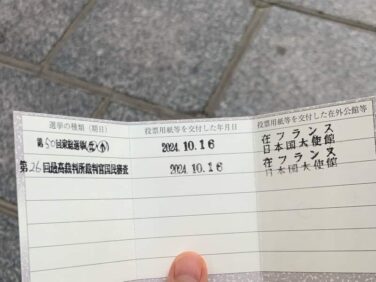 選挙の種類(期日) 投票用紙等を交付した年月日 投票用紙等を交付した在外公館等
第50回衆総選挙 2024.10.16 在フランス
日本国大使館
第26回最高裁判所裁判官国民審査 2024.10.16 在フランス
日本国大使館